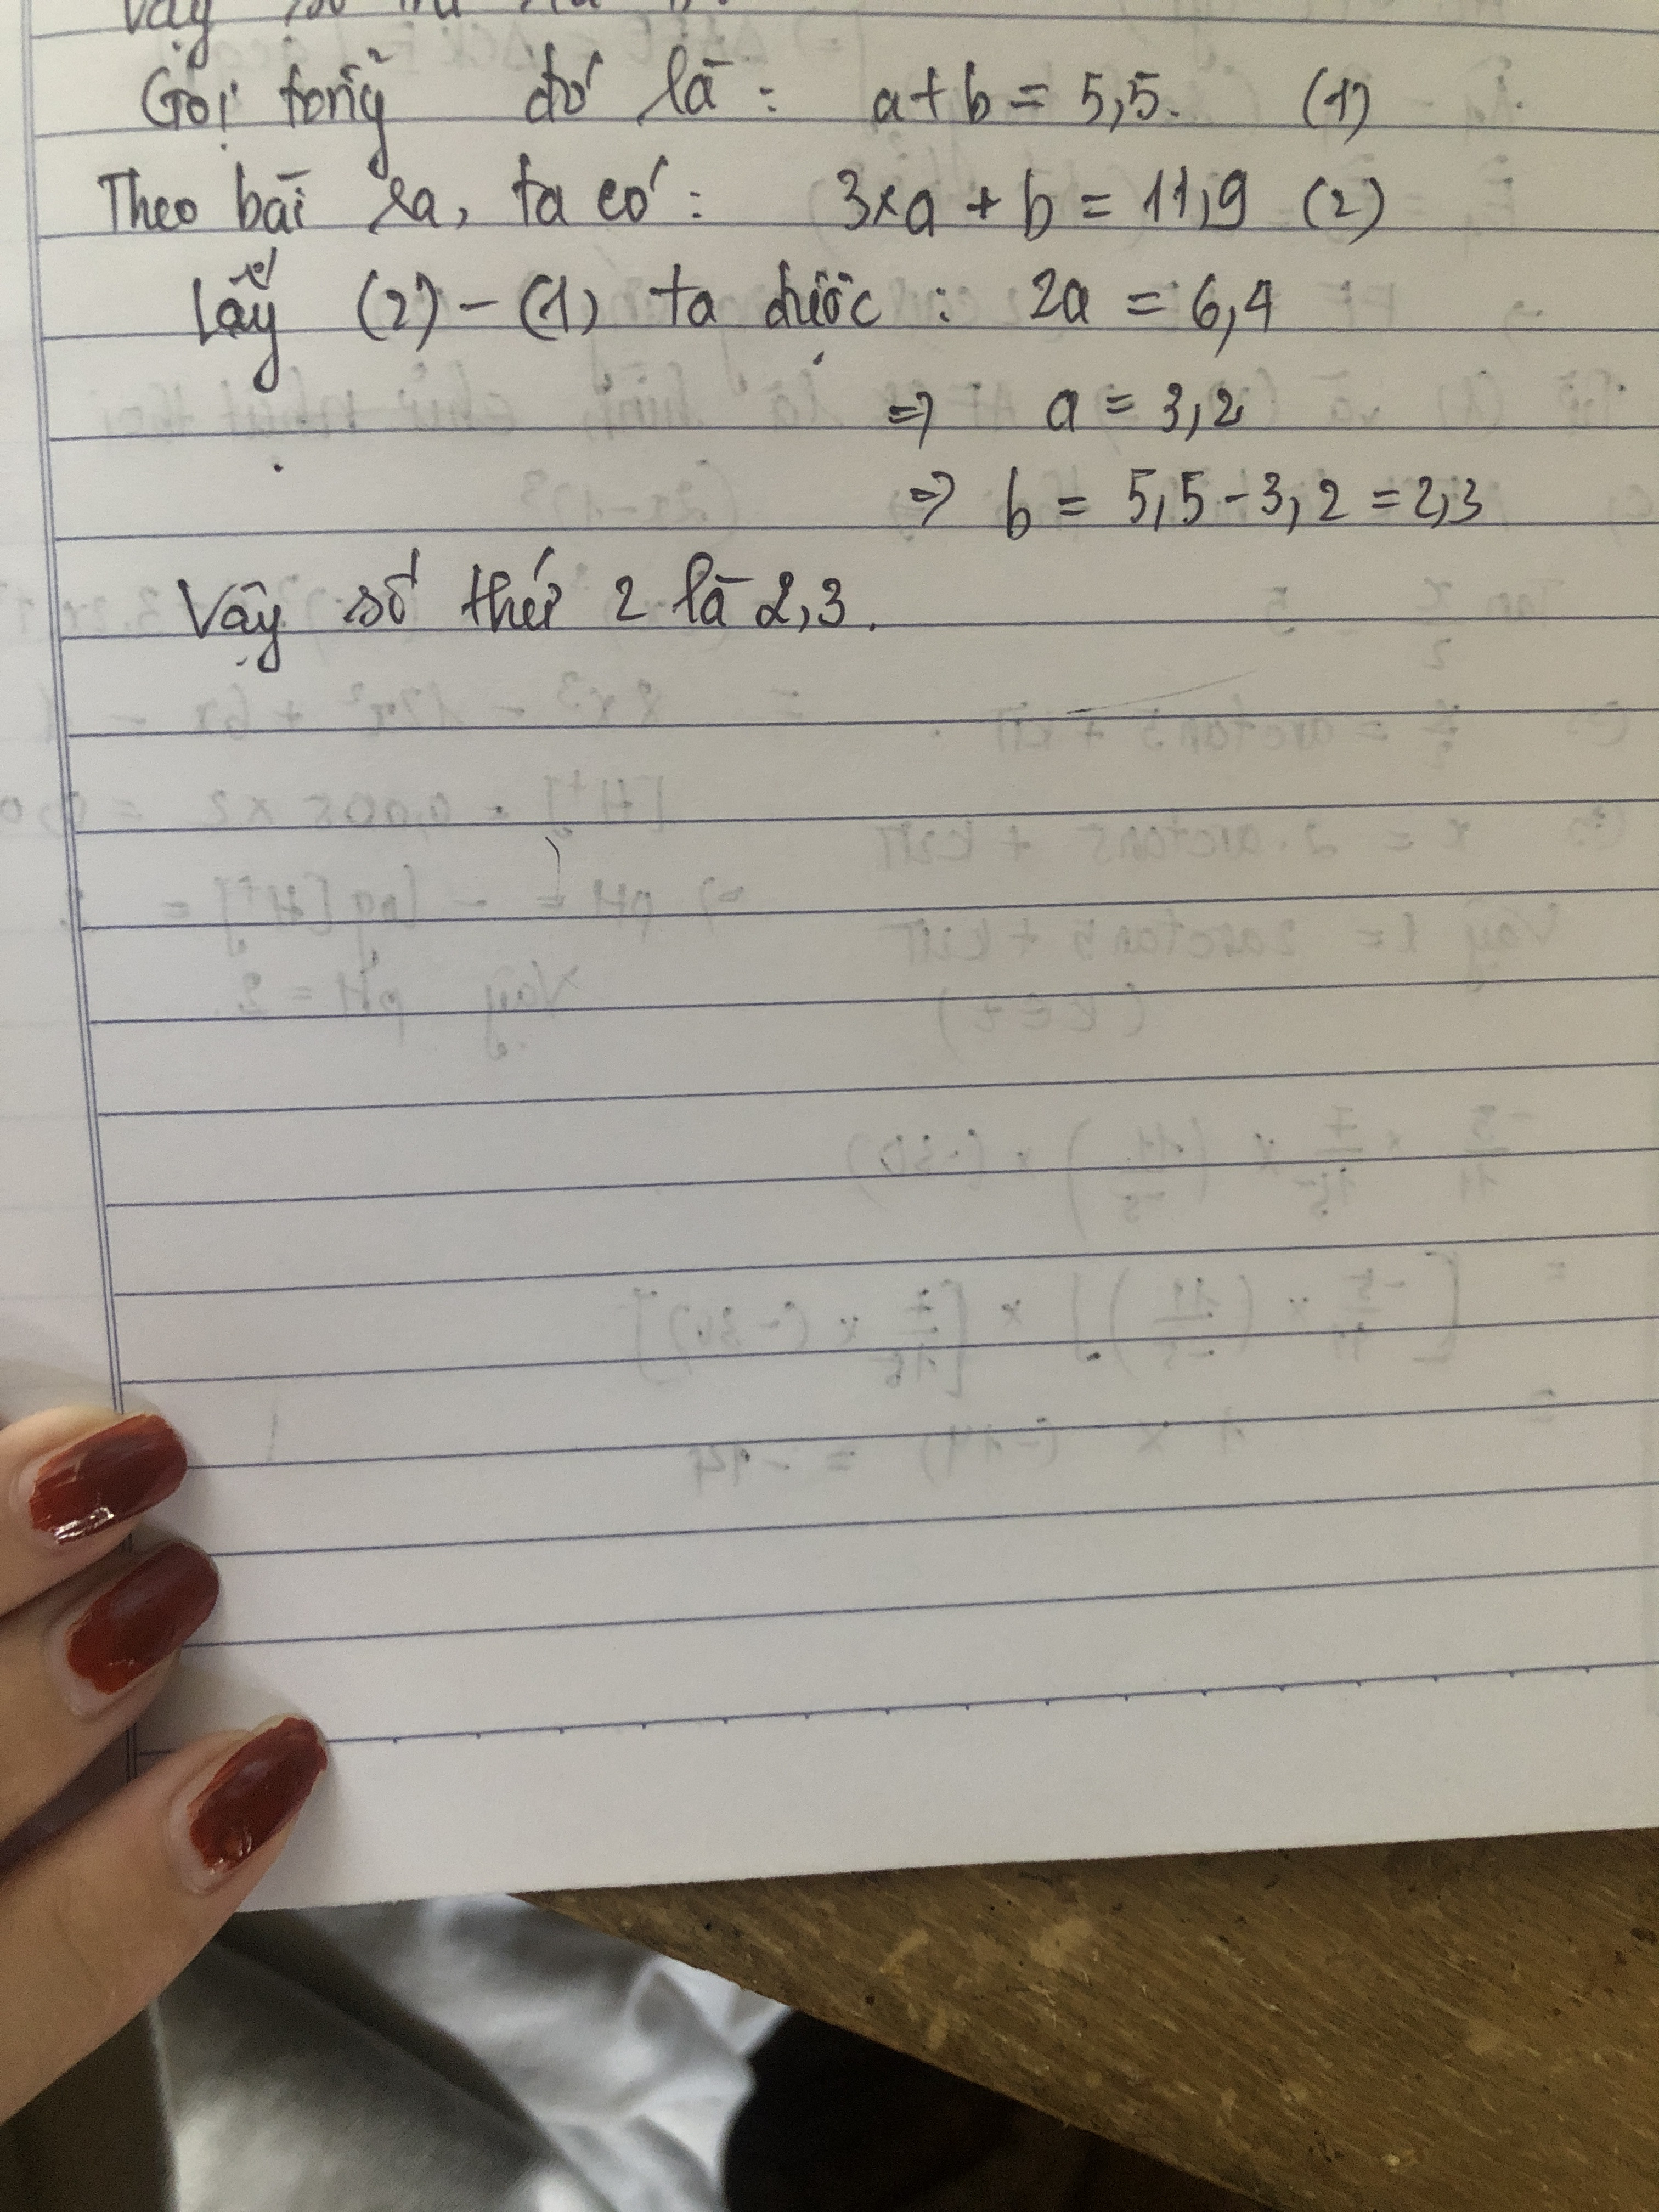 Vậy số
Gọi tổng đó là : a + b = 5,5. (1)
Theo bài ra, ta có : 3×a + b = 11,9 (2)
Lấy (2) - (1) ta được : 2a = 6,4
=> a = 3,2
=> b = 5,5 - 3,2 = 2,3
Vậy số thứ 2 là 2,3.